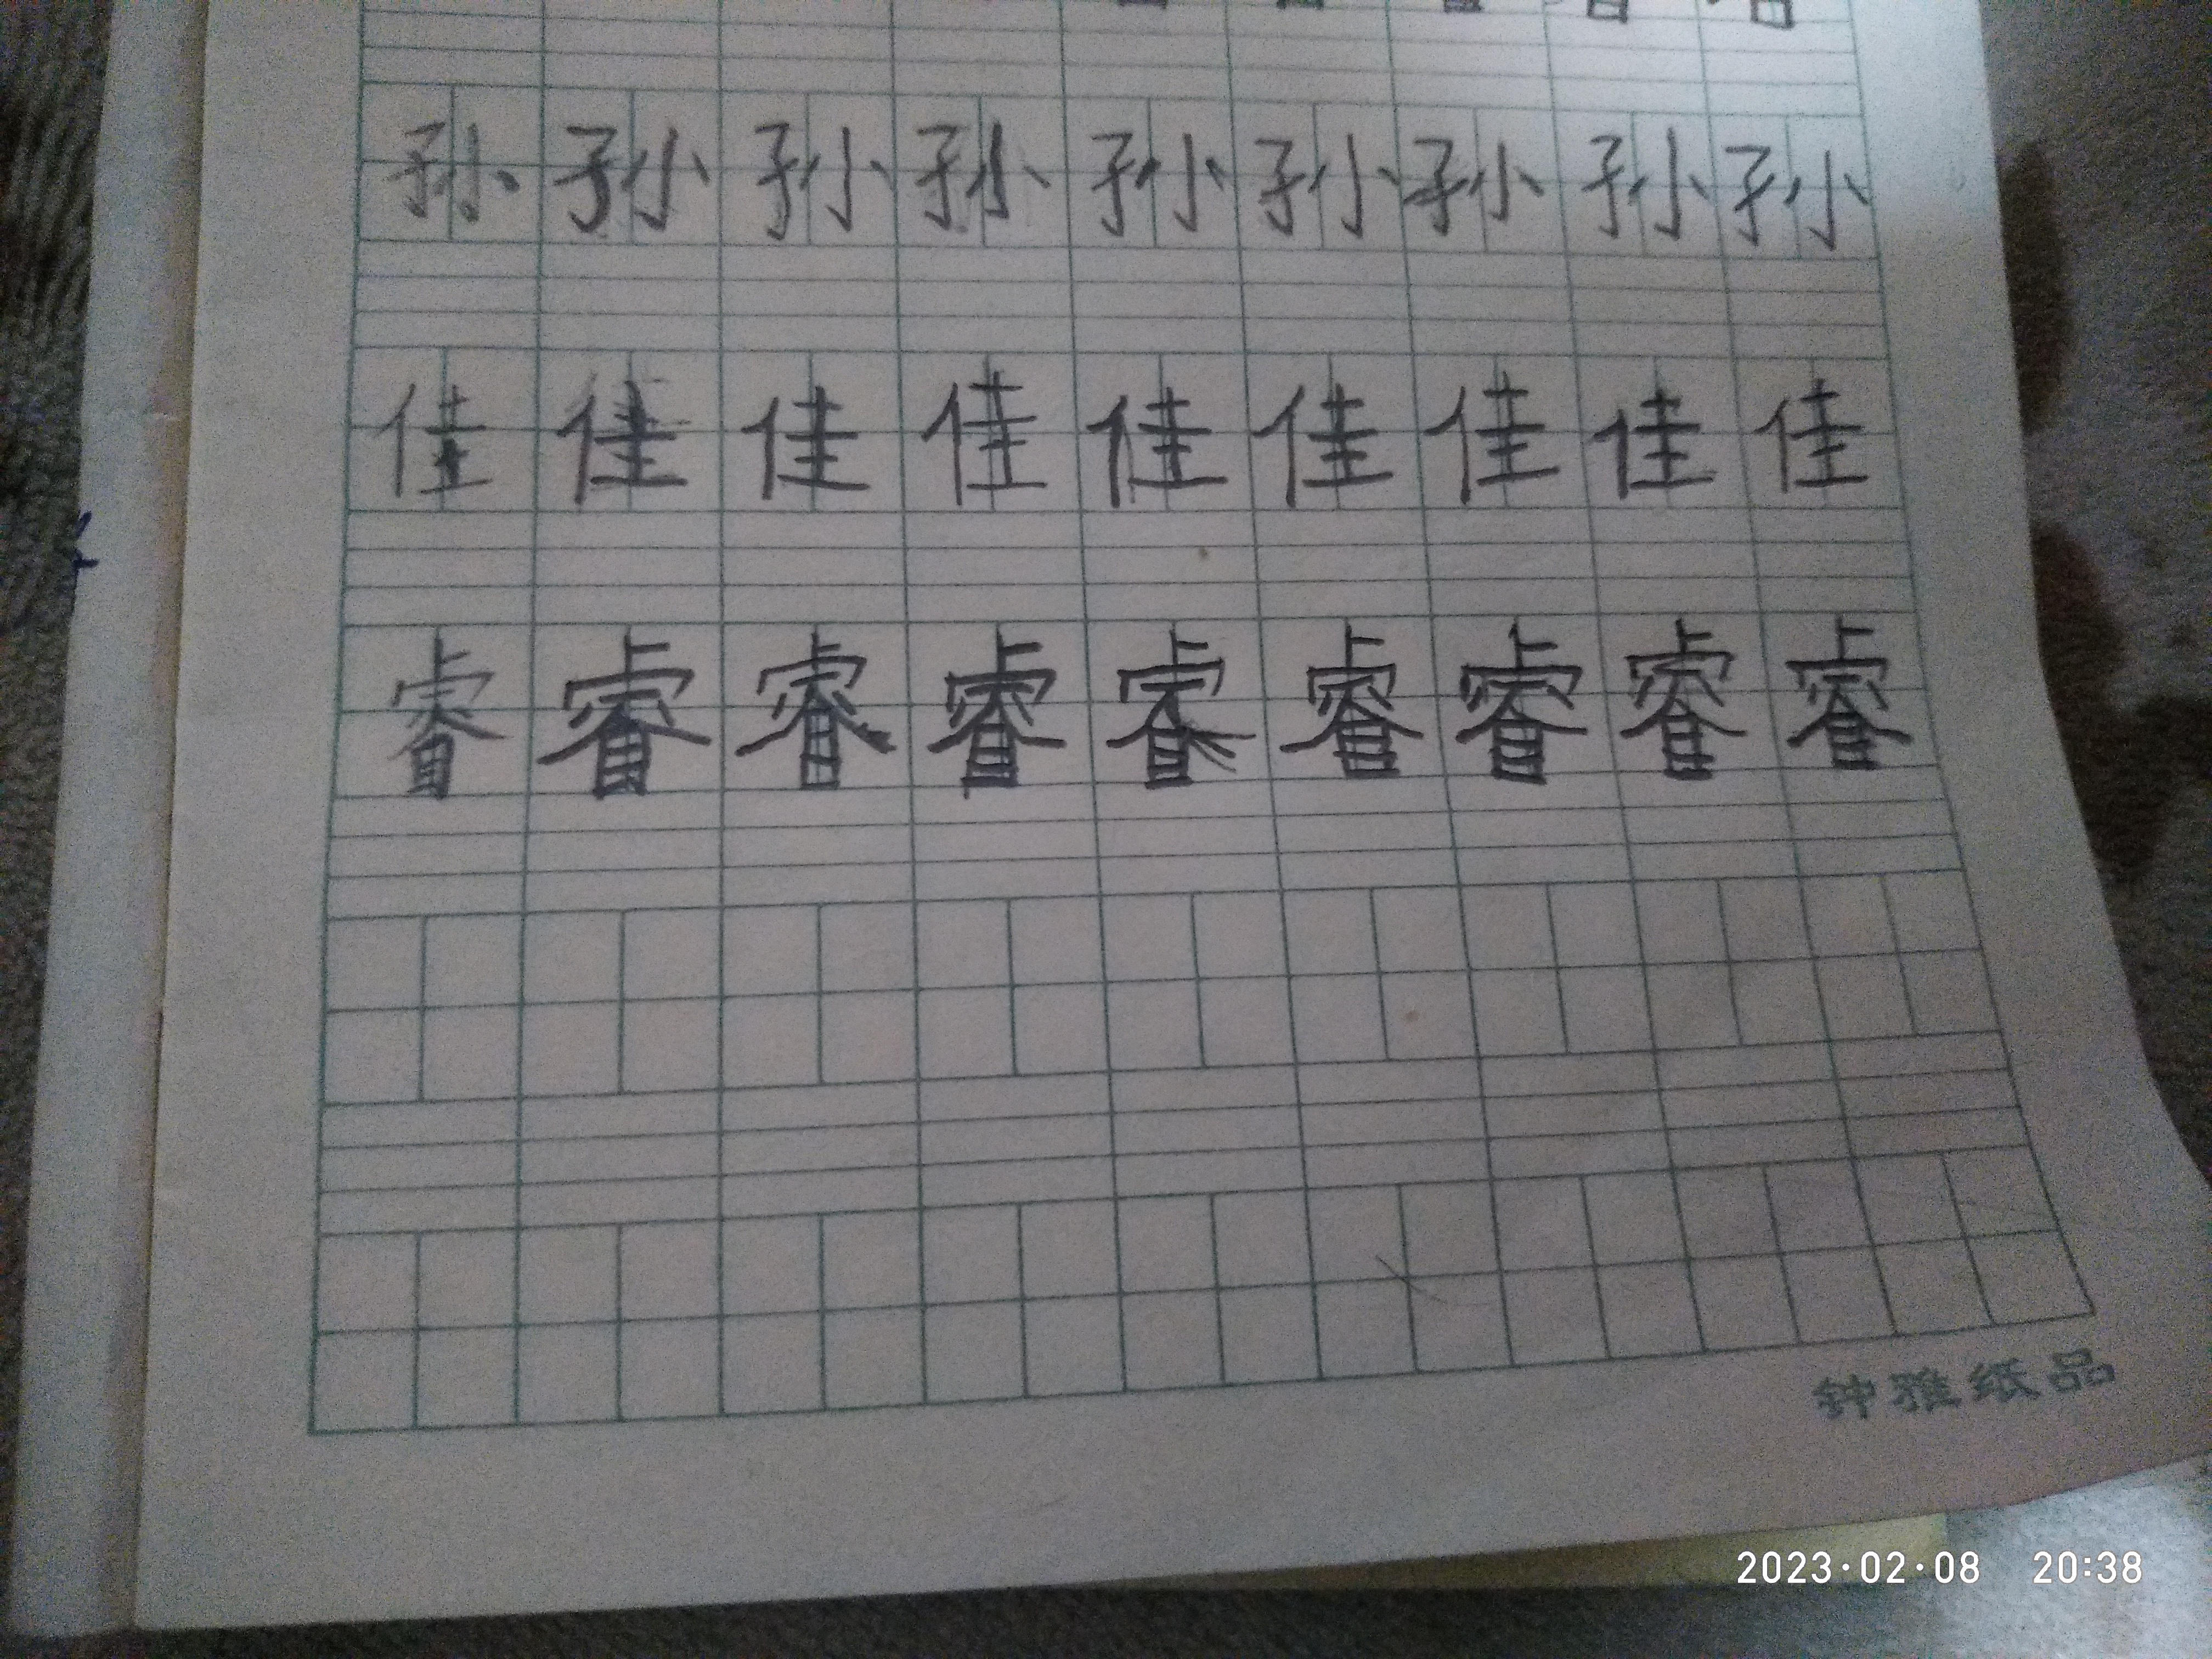 孙孙孙孙孙孙孙孙孙
佳佳佳佳佳佳佳佳佳
睿睿睿睿睿睿睿睿睿
钟雅纸品
2023·02·08 20:38